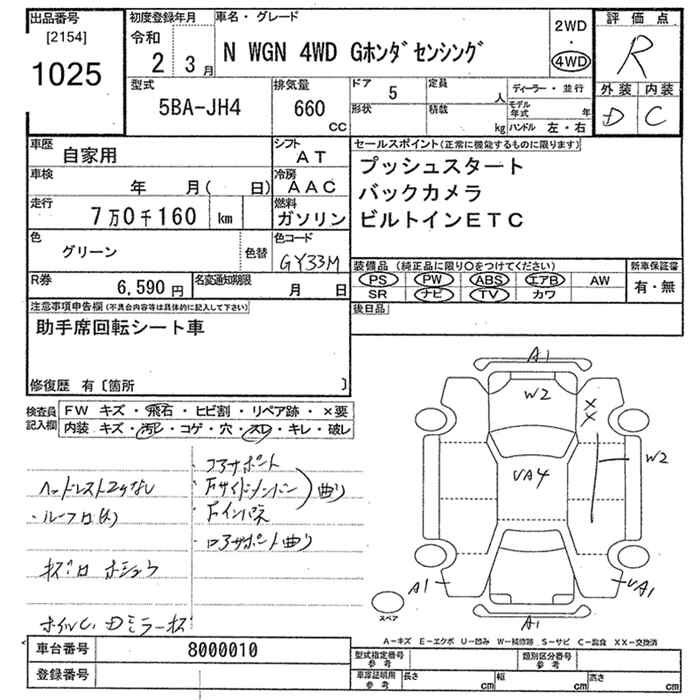 出品番号
[2154]
1025
初度登録年月
令和
2 3月
車名・グレード
N WGN 4WD Gホンダセンシング
2WD
・
4WD
評価点
R
外装 内装
D C
型式
5BA-JH4
排気量
660
CC
ドア
5
定員
人
形状
積載
kg
ディーラー・並行
モデル年式 年
ハンドル 左・右
車歴
自家用
シフト
AT
車検
年 月( 日)
冷房
AAC
走行
7万0千160 km
燃料
ガソリン
色
グリーン
色替
色コード
GY33M
R券
6,590円
名変通知期限
月 日
セールスポイント(正常に機能するものに限ります)
プッシュスタート
バックカメラ
ビルトインETC
装備品(純正品に限り○をつけてください)
PS PW ABS エアB AW
SR ナビ TV カワ
新車保証書
有・無
後日品
注意事項申告欄(不具合内容等は具体的に記入して下さい)
助手席回転シート車
修復歴 有〔箇所 〕
検査員記入欄
FW キズ・飛石・ヒビ割・リペア跡・×要
内装 キズ・汚レ・コゲ・穴・スレ・キレ・破レ
コアサポート
ヘッドレスト2ケなし
Fサイドメンバー
曲り
・ルーフ
Fインパネ
ロアサポート曲り
ホイルC、Dミラー
A1
W2
XX
W2
VA4
A1
VA1
A1
スペア
A-キズ E-エクボ U-凹み W-補修跡 S-サビ C-腐食 XX-交換済
車台番号
8000010
登録番号
型式指定番号
参考
類別区分番号
参考
車庫証明用
参考
長さ
cm
幅
cm
高さ
cm